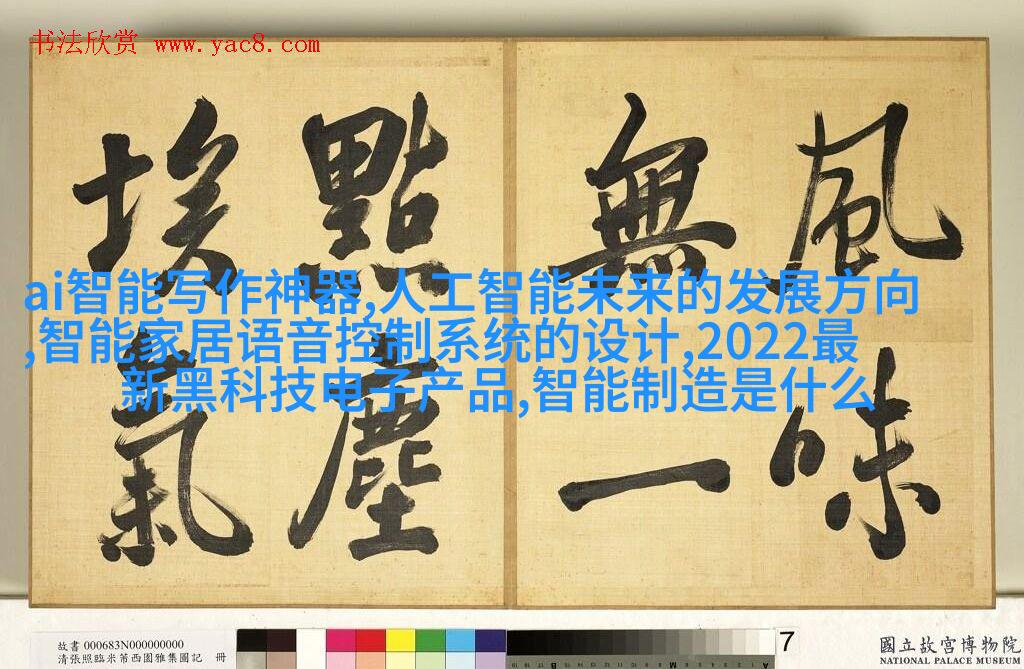 书法欣赏 www.yac8.com
風味
無一
點塵
埃氣
ai智能写作神器,人工智能未来的发展方向
,智能家居语音控制系统的设计,2022最
新黑科技电子产品,智能制造是什么
故書 000683N000000000
清張照臨米芾西園雅集圖記 冊
7
國立故宮博物院
NATIONAL PALACE MUSEUM